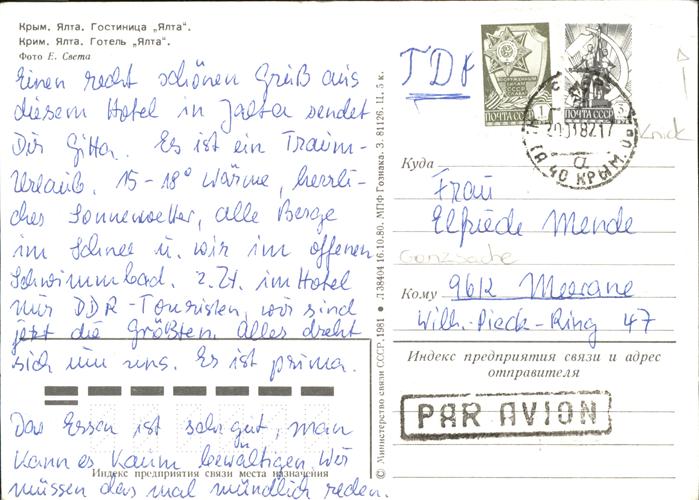 Крым. Ялта. Гостиница „Ялта“.
Крим. Ялта. Готель „Ялта“.
Фото Е. Света
Einen recht schönen Gruß aus
diesem Hotel in Jalta sendet
Dir Gitta. Es ist ein Traum-
Urlaub. 15-18° Wärme, herrli-
ches Sonnenwetter, alle Berge
im Schnee u. wir im offenen
Schwimmbad. z.Zt. im Hotel
nur DDR-Touristen, wir sind
jetzt die Größten. Alles dreht
sich um uns. Es ist prima.
Das Essen ist sehr gut, man
kann es kaum bewältigen. Wir
müssen das mal mündlich reden.
Индекс предприятия связи места назначения
© Министерство связи СССР. 1981 ● Л 38404 16.10.80. МПФ Гознака. З. 81126. Ц. 5 к.
ПОЧТА СССР 1
ПОЧТА СССР 3
Knick
Куда
Frau
Elfriede Mende
Ganzsache
Кому 9612 Meerane
Wilh.-Pieck-Ring 47
Индекс предприятия связи и адрес
отправителя
PAR AVION